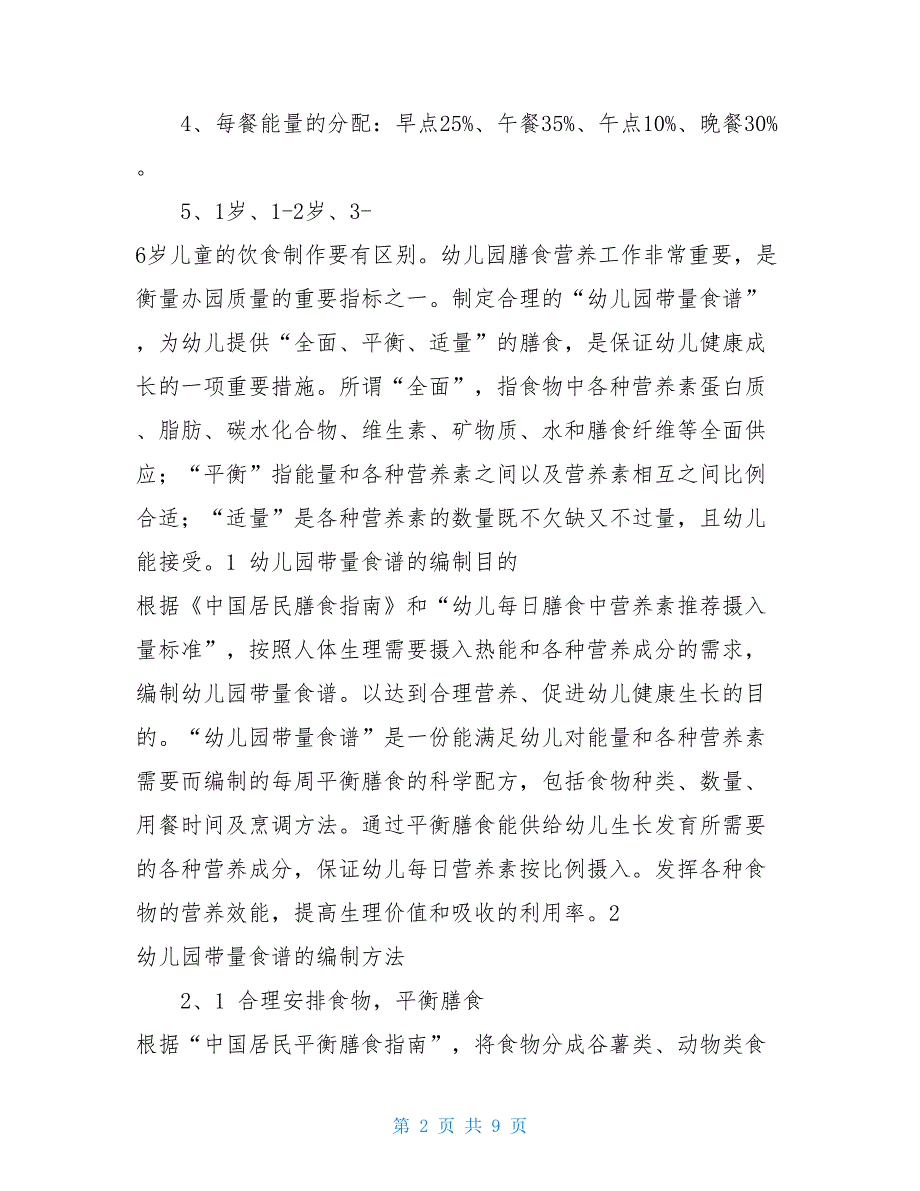 4、每餐能量的分配：早点25%、午餐35%、午点10%、晚餐30%
。
5、1岁、1-2岁、3-
6岁儿童的饮食制作要有区别。幼儿园膳食营养工作非常重要，是
衡量办园质量的重要指标之一。制定合理的“幼儿园带量食谱”
，为幼儿提供“全面、平衡、适量”的膳食，是保证幼儿健康成
长的一项重要措施。所谓“全面”，指食物中各种营养素蛋白质
、脂肪、碳水化合物、维生素、矿物质、水和膳食纤维等全面供
应；“平衡”指能量和各种营养素之间以及营养素相互之间比例
合适；“适量”是各种营养素的数量既不欠缺又不过量，且幼儿
能接受。1 幼儿园带量食谱的编制目的
根据《中国居民膳食指南》和“幼儿每日膳食中营养素推荐摄入
量标准”，按照人体生理需要摄入热能和各种营养成分的需求，
编制幼儿园带量食谱。以达到合理营养、促进幼儿健康生长的目
的。“幼儿园带量食谱”是一份能满足幼儿对能量和各种营养素
需要而编制的每周平衡膳食的科学配方，包括食物种类、数量、
用餐时间及烹调方法。通过平衡膳食能供给幼儿生长发育所需要
的各种营养成分，保证幼儿每日营养素按比例摄入。发挥各种食
物的营养效能，提高生理价值和吸收的利用率。2
幼儿园带量食谱的编制方法
2、1 合理安排食物，平衡膳食
根据“中国居民平衡膳食指南”，将食物分成谷薯类、动物类食
第 2 页 共 9 页